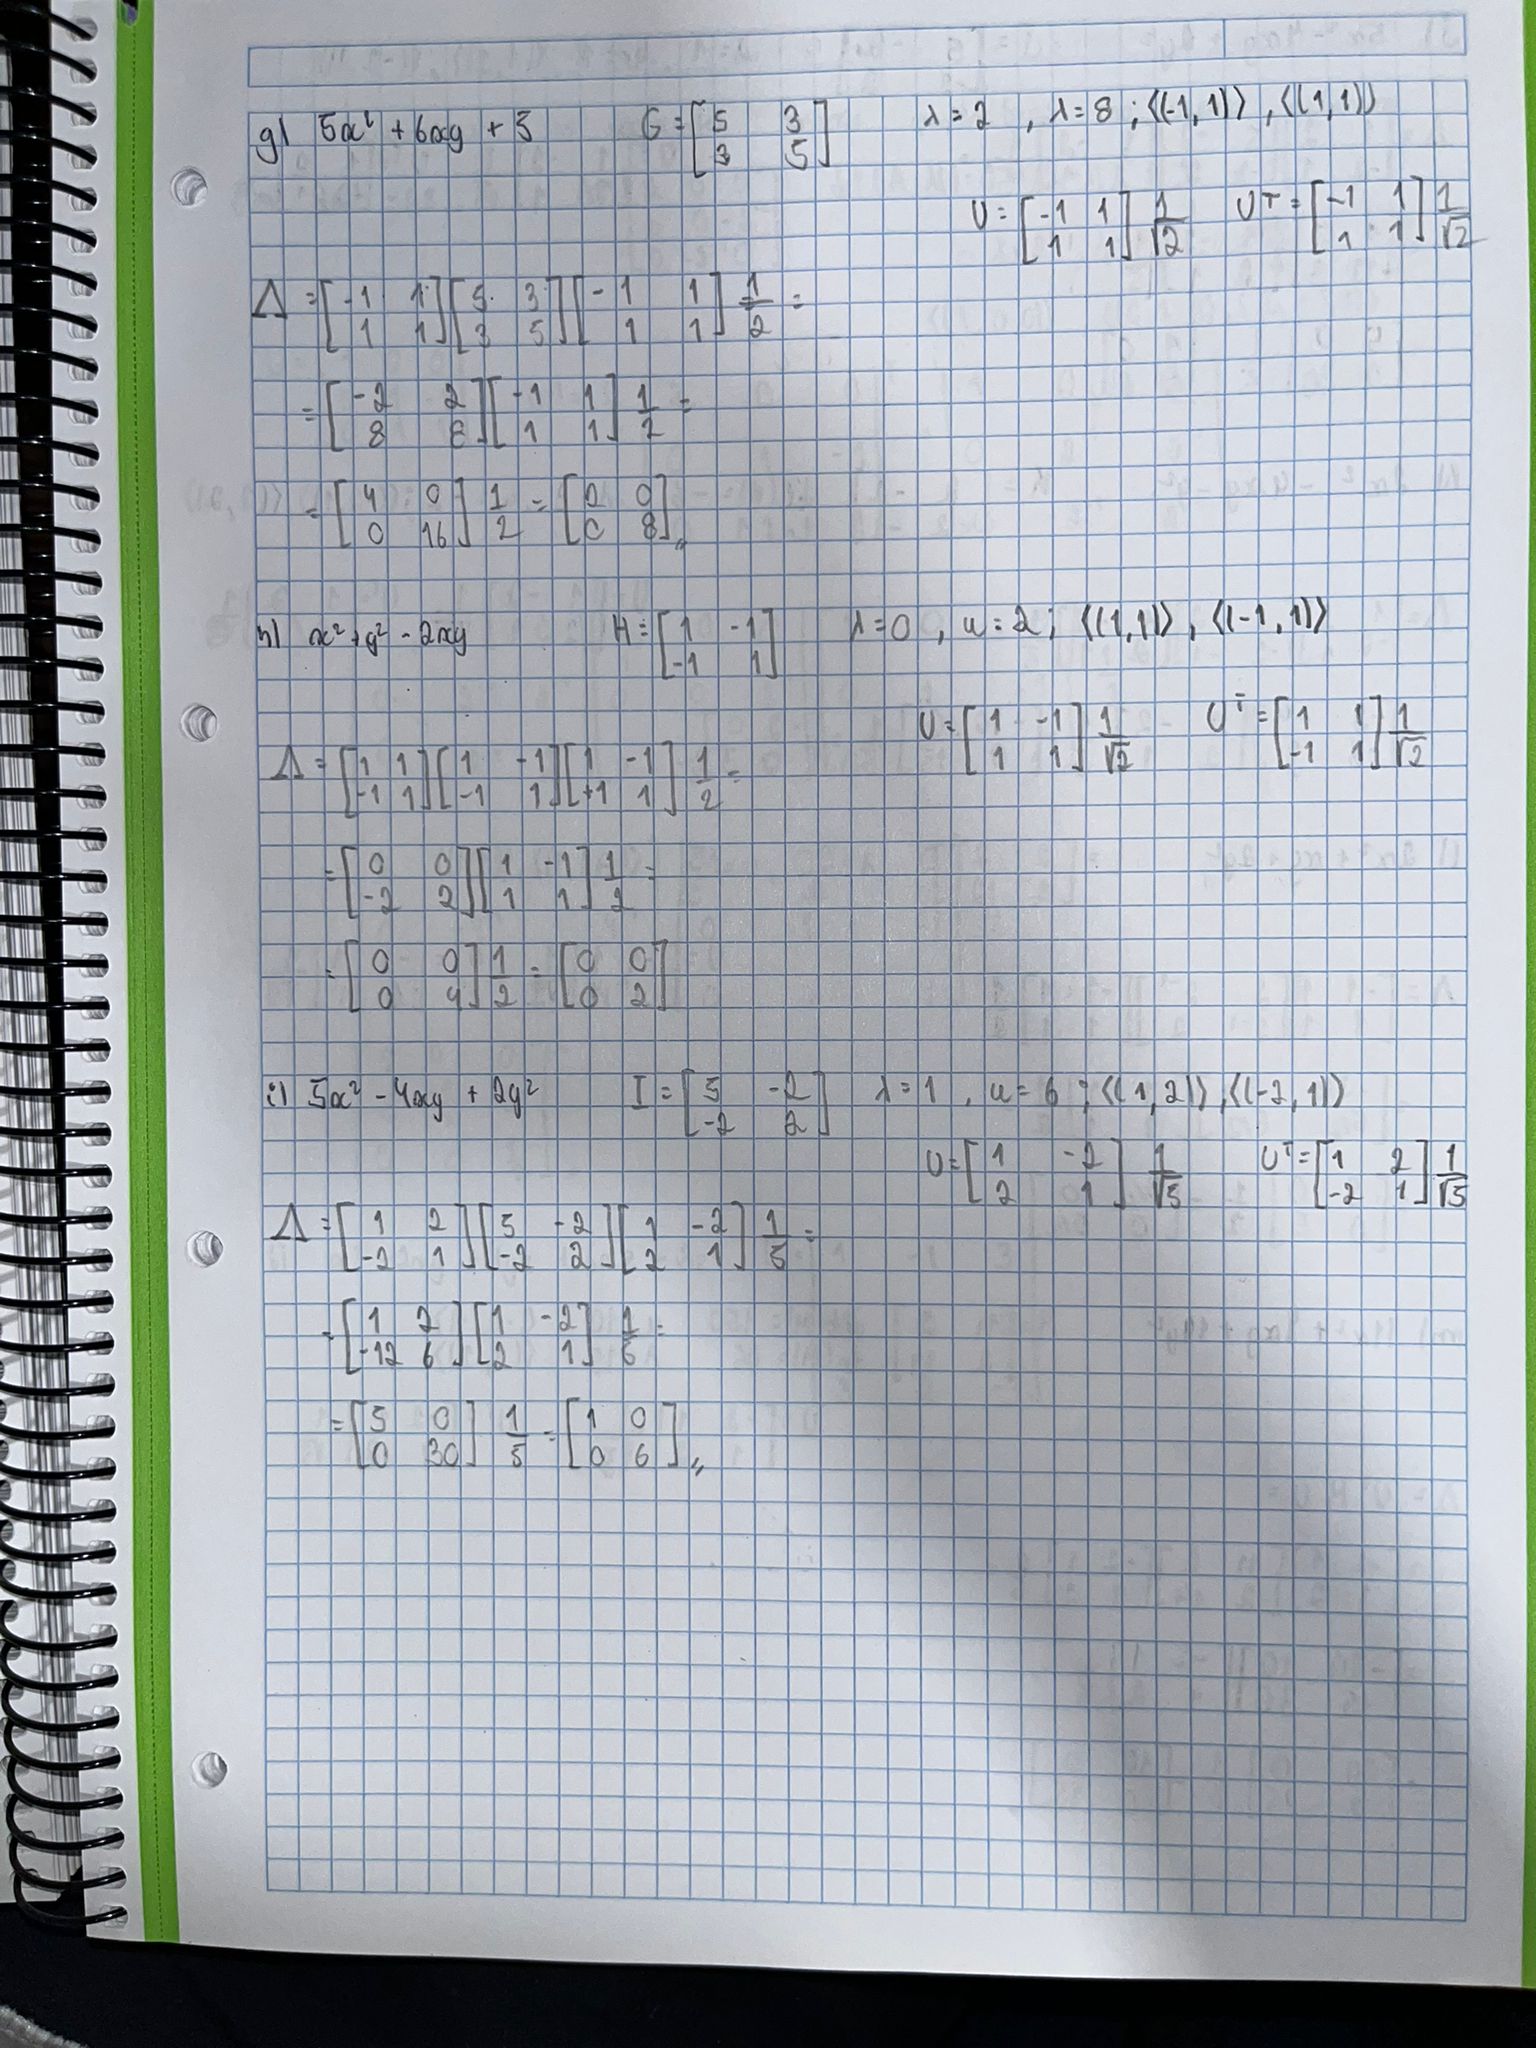 g) 5x² + 6xy + 5 G = [5 3; 3 5] λ=2 , λ=8 ; ⟨(-1,1)⟩ , ⟨(1,1)⟩
U = [-1 1; 1 1] 1/√2 Uᵀ = [-1 1; 1 1] 1/√2
Λ = [-1 1; 1 1] [5 3; 3 5] [-1 1; 1 1] 1/2 =
= [-2 2; 8 8] [-1 1; 1 1] 1/2 =
= [4 0; 0 16] 1/2 = [2 0; 0 8]„
h) x² + y² - 2xy H = [1 -1; -1 1] λ=0 , u=2 ; ⟨(1,1)⟩ , ⟨(-1,1)⟩
U = [1 -1; 1 1] 1/√2 Uᵀ = [1 1; -1 1] 1/√2
Λ = [1 1; -1 1] [1 -1; -1 1] [1 -1; +1 1] 1/2 =
= [0 0; -2 2] [1 -1; 1 1] 1/2 =
= [0 0; 0 4] 1/2 = [0 0; 0 2]
i) 5x² - 4xy + 2y² I = [5 -2; -2 2] λ=1 , u=6 ; ⟨(1,2)⟩ , ⟨(-2,1)⟩
U = [1 -2; 2 1] 1/√5 Uᵀ = [1 2; -2 1] 1/√5
Λ = [1 2; -2 1] [5 -2; -2 2] [1 -2; 2 1] 1/5 =
= [1 2; -12 6] [1 -2; 2 1] 1/5 =
= [5 0; 0 30] 1/5 = [1 0; 0 6]„